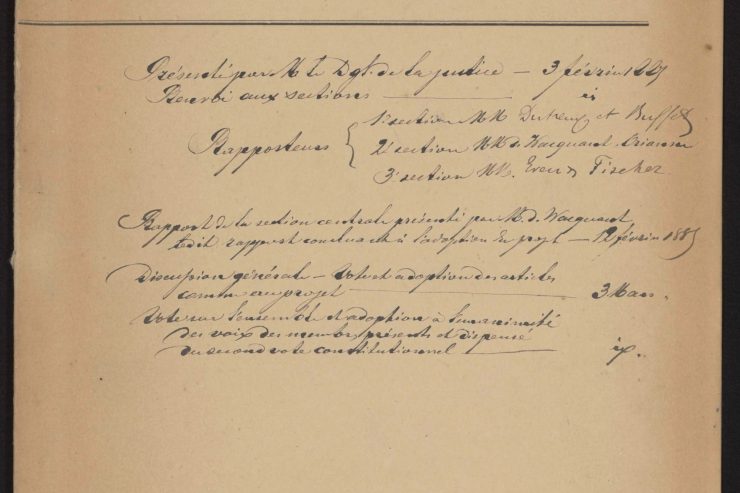 Présenté par M le Dgt. de la justice — 3 février 1885
Renvoi aux sections — id
Rapporteurs
1e section MM et Buffet
2e section MM de Wacquant,
3e section MM. et Fischer
Rapport de la section centrale présenté par M. de Wacquant,
ledit rapport concluant à l'adoption du projet — 12 février 1885
Discussion générale — Vote et adoption des articles
comme au projet — 3 Mars.
Vote sur l'ensemble et adoption à l'unanimité
des voix des membres présents et dispense
du second vote constitutionnel —